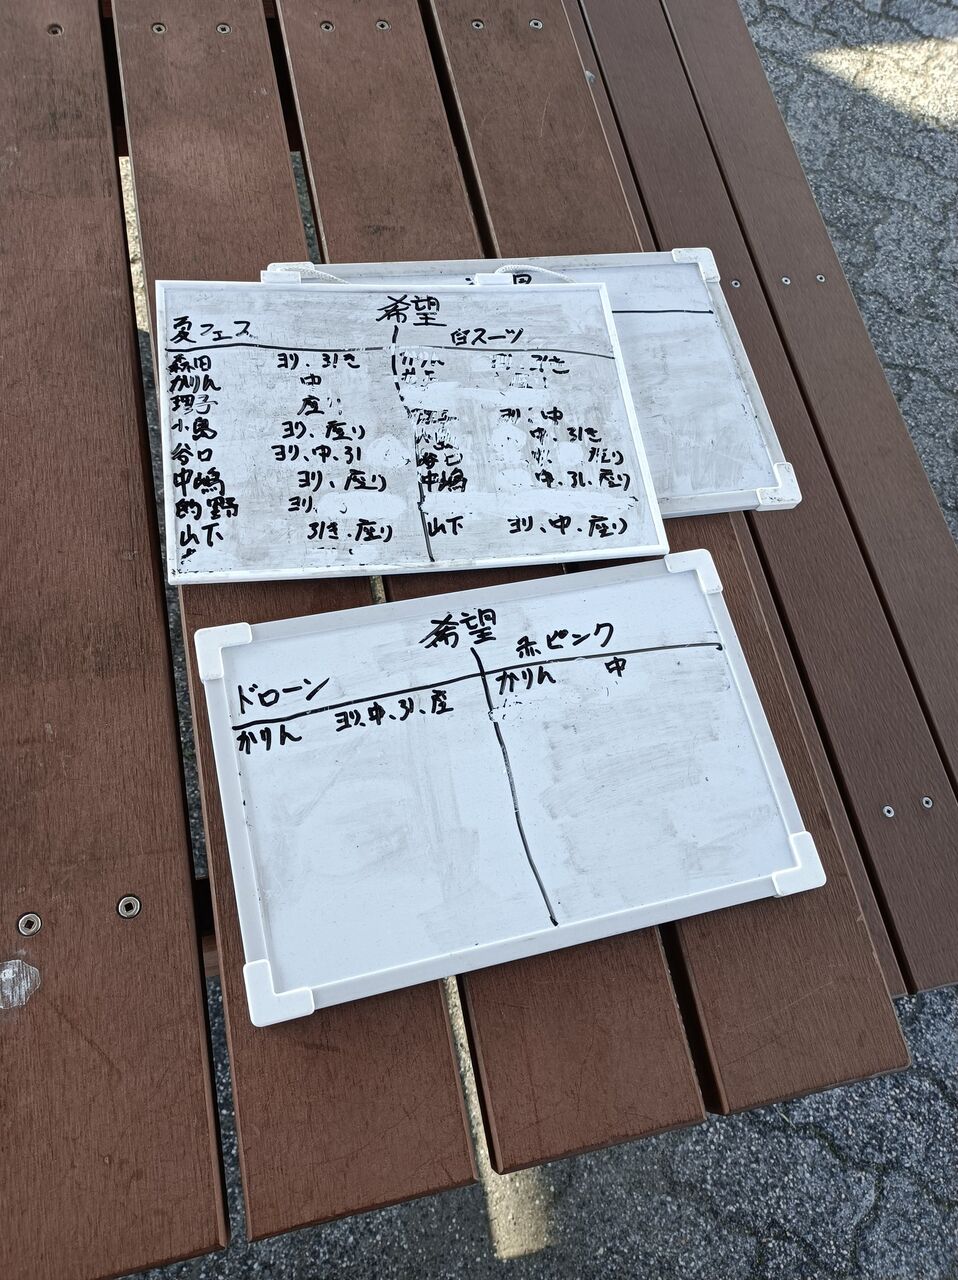 希望
夏フェス 白スーツ
森田 ヨリ、引き かりん ヨリ、引き
かりん 中
理子 座り ヨリ、中
小島 ヨリ、座り 中、引き
谷口 ヨリ、中、引 谷口 座り
中嶋 ヨリ、座り 中嶋 中、引、座り
的野 ヨリ、
山下 引き、座り 山下 ヨリ、中、座り
希望
ドローン 赤ピンク
かりん ヨリ、中、引、座 かりん 中